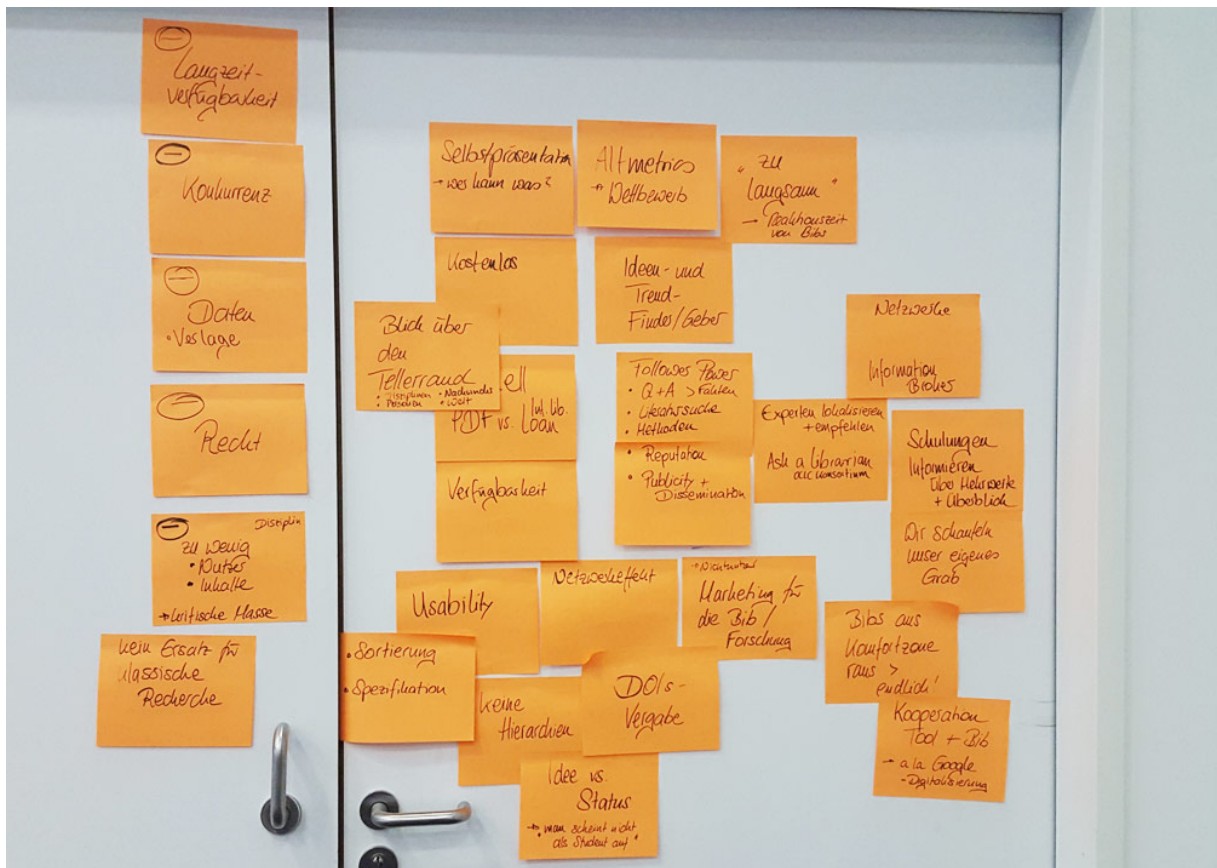 Langzeit-
verfügbarkeit
Konkurrenz
Daten
• Verlage
Recht
Disziplin
zu wenig
• Nutzer
• Inhalte
→ kritische Masse
kein Ersatz für
klassische
Recherche
Selbstpräsentation
→ wer kann was?
Altmetrics
→ Wettbewerb
"zu
langsam"
→ Reaktionszeit
von Bibs
Kostenlos
Ideen- und
Trend-
Finder/Geber
Blick über
den
Tellerrand
• Disziplinen • Nachwuchs
• Personen • Welt
ell
PDF vs. Loan
Verfügbarkeit
Follower Power
• Q + A > Fakten
• Literatursuche
• Methoden
• Reputation
• Publicity +
Dissemination
Experten lokalisieren
+ empfehlen
Ask a Librarian
Netzwerke
Information
Broker
Schulungen
Informieren
über Mehrwerte
+ Überblick
Wir schaufeln
unser eigenes
Grab
Usability
Netzwerkeffekt
→ Nichtnutzer
Marketing für
die Bib /
Forschung
Bibs aus
Komfortzone
raus >
endlich!
• Sortierung
• Spezifikation
keine
Hierarchien
DOIs-
Vergabe
Kooperation
Tool + Bib
→ a la Google
- Digitalisierung
Idee vs.
Status
→ "man scheint nicht
als Student auf"